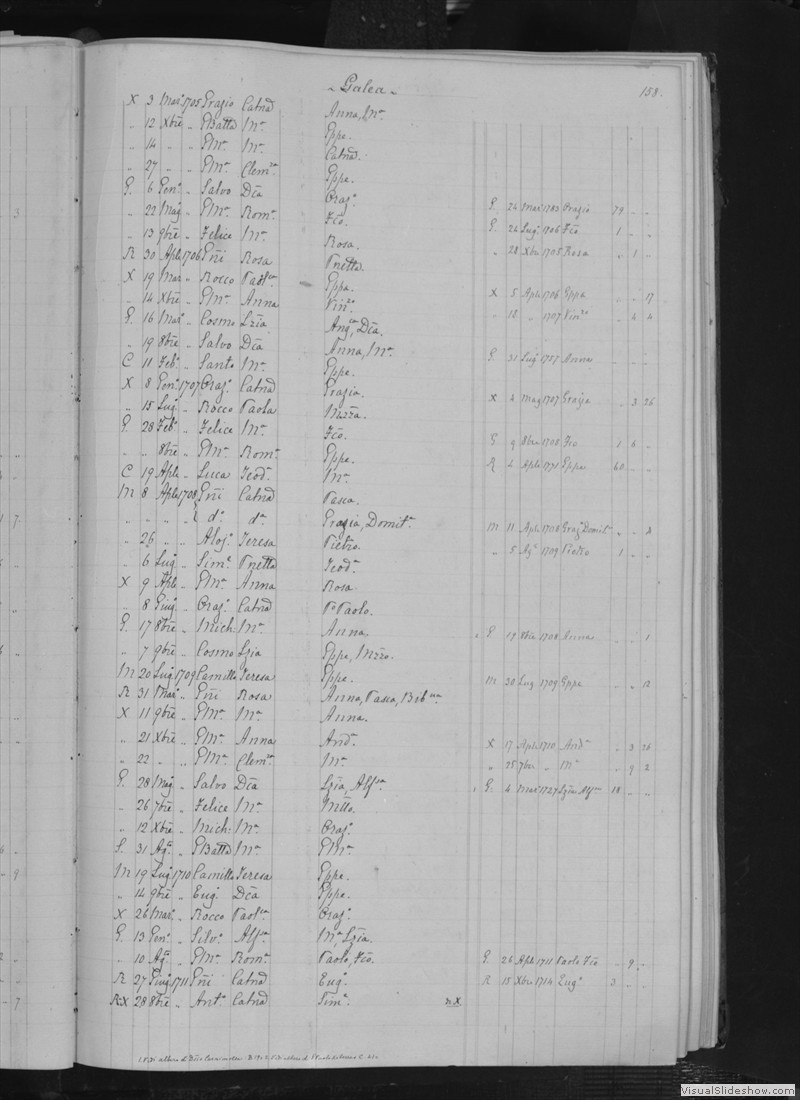 Galea
158.
X 3 Mar.° 1705 Grazio Catnd Anna, Ma.
" 12 Xbre " GBatta Ma. Gppe.
" 14 " " GMa. Ma. Catnd.
" 27 " " GMa. Clem.za Gppe.
G. 6 Gen.° " Salvo Dca Oraz.°
" 22 Mag " GMa. Rom.a Fco. G. 24 Mar 1783 Orazio 79 " "
" 13 9bre " Felice Ma. Rosa. G. 26 Lug.° 1706 Fco 1 " "
R 30 Aple 1706 Gni Rosa Pnetta. " 28 Xbre 1705 Rosa " 1 "
X 19 Mar " Rocco Paol.ca Gppa. X 5 Aple 1706 Gppa " " 17
" 14 Xbre " GMa. Anna Vin.zo " 18 " 1707 Vin.zo " 4 4
G. 16 Mar.° " Cosmo Lzia Ang.ca, Dca.
" 19 8bre " Salvo Dca Anna, Ma. G. 31 Lug 1707 Anna " " "
C 11 Feb.° " Santo Ma. Gppe.
X 8 Gen.° 1707 Oraz.° Catnd Grazia. X 4 Mag 1707 Grazia " 3 26
" 15 Lug " Rocco Paola Nizza.
G. 28 Feb.° " Felice Ma. Fco. G 9 8bre 1708 Fco 1 6 "
" " 8bre " GMa. Rom.a Gppe. R 4 Aple 1771 Gppe 60 " "
C 19 Aple " Luca Teod.a Ma.
M 8 Aple 1708 Gni Catnd Pasca.
" " " " d.° d.a Grazia, Domit.a M 11 Aple 1708 Graz.a Domit.a " " 3
" 26 " " Aloj.° Teresa Pietro. " 5 Ag.° 1709 Pietro 1 " "
" 6 Lug " Sim.e Pnetta Teod.a
X 9 Aple " GMa. Anna Rosa
" 8 Giug " Oraz.° Catnd Po Paolo.
G. 17 8bre " Mich: Ma. Anna. G 19 Xbre 1708 Anna " " 1
" 7 9bre " Cosmo Lzia Gppe, Nizzo.
M 20 Lug 1709 Camillo Teresa Gppe. M 30 Lug 1709 Gppe " " 12
R 31 Mar.° " Gni Rosa Anna, Pasca, Bib.na
X 11 9bre " GMa. Ma. Anna.
" 21 Xbre " GMa. Anna And.a X 17 Aple 1710 And.a " 3 26
" 22 " " GMa. Clem.za Ma. " 25 7bre " Ma. " 9 2
G. 28 Mag " Salvo Dca Lzia, Alf.sa G. 4 Mar 1727 Lzia Alf.sa 18 " "
" 26 7bre " Felice Ma.
" 12 Xbre " Mich: Ma. Oraz.°
S. 31 Ag.° " GBatta Ma. GMa.
M 19 Lug 1710 Camillo Teresa Gppe.
" 14 9bre " Eug.° Dca Gppe.
X 26 Mar.° " Rocco Paol.ca Oraz.°
G. 13 Gen.° " Silv.° Alf.sa Ma. Lzia.
" 10 Ag.° " GMa. Rom.a Paolo, Fco. G. 26 Aple 1711 Paolo Fco " 9 "
R 27 Giug 1711 Gni Catnd Eug.° R 15 Xbre 1714 Eug.° 3 " "
R.X 28 8bre " Ant.° Catnd Sim.e
VisualSlideshow.com